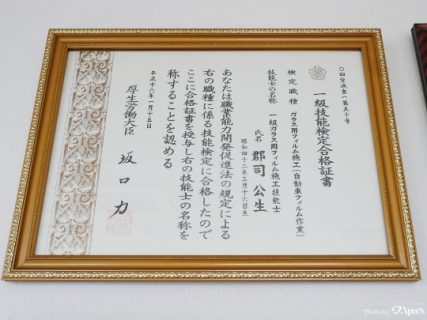 一級技能検定合格証書
検定職種 ガラス用フィルム施工(自動車フィルム作業)
技能士の名称 一級ガラス用フィルム施工技能士
氏名 郡司 公生
昭和四十二年三月十六日生
あなたは職業能力開発促進法の規定による
右の職種に係る技能検定に合格したので
ここに合格証書を授与し右の技能士の名称を
称することを認める
平成十三年一月十五日
厚生労働大臣 坂口 力
Photo by Apec's